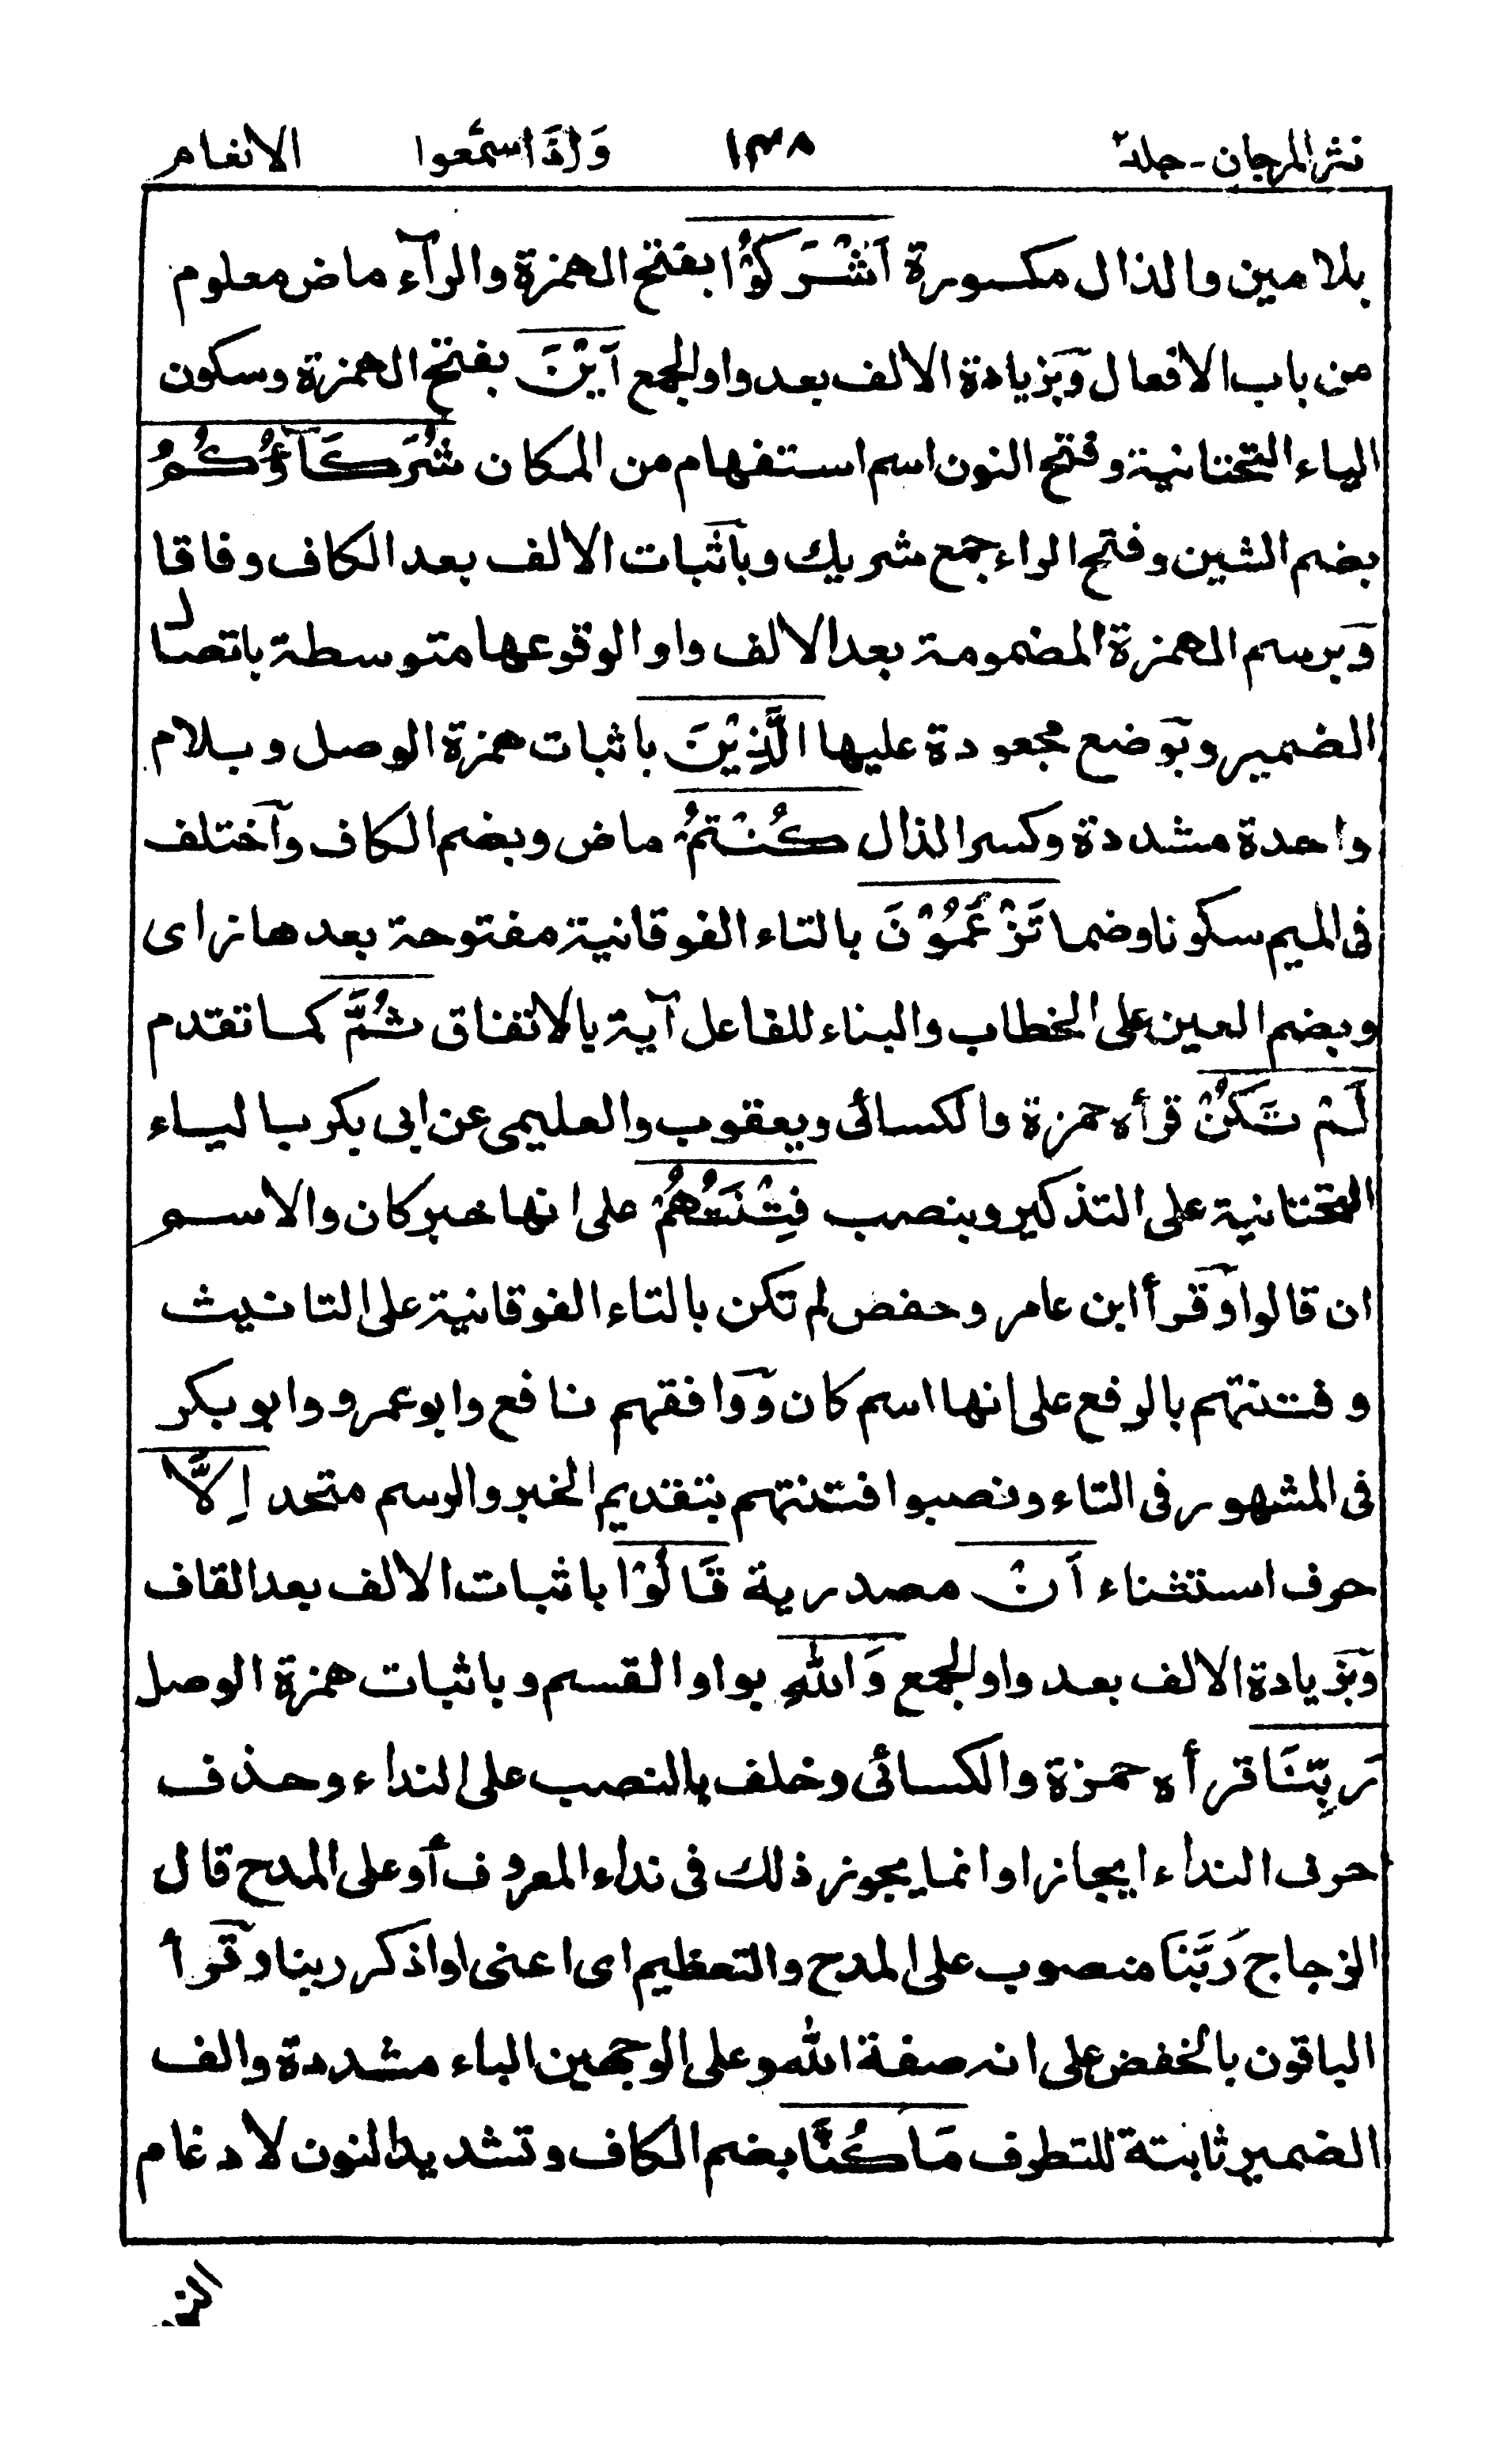 نثر المرجان - جلد ٢ ١٣٨ وَاِذَا سَمِعُوا الانعام
بلامين والذال مكسورة اَشْرَكُوْا بفتح الهمزة والرآء ماض معلوم
من باب الافعال وَبزيادة الالف بعد واو الجمع اَيْنَ بفتح الهمزة وسكون
الياء التحتانية وفتح النون اسم استفهام من المكان شُرَكَآؤُكُمُ
بضم الشين وفتح الراء جمع شريك وبآثبات الالف بعد الكاف وفاقا
وَبرسم الهمزة المضمومة بعد الالف واوا لوقوعها متوسطة باتصال
الضمير وبوضع مجعودة عليها الَّذِيْنَ باثبات همزة الوصل وبلام
واحدة مشددة وكسر الذال كُنْتُمْ ماض وبضم الكاف وآختلف
فى الميم سكونا وضما تَزْعُمُوْنَ بالتاء الفوقانية مفتوحة بعدها زاى
وبضم العين على الخطاب والبناء للفاعل آية بالاتفاق ثُمَّ كما تقدم
لَمْ تَكُنْ قرأه حمزة والكسائى ويعقوب والعليمى عن ابى بكر بالياء
التحتانية على التذكير وبنصب فِتْنَتُهُمْ على انها خبر كان والاسم
ان قالوا وقرأ ابن عامر وحفص لم تكن بالتاء الفوقانية على التانيث
وفتنتهم بالرفع على انها اسم كان وَوافقهم نافع وابو عمرو وابو بكر
فى المشهور فى التاء ونصبوا فتنتهم بتقديم الخبر والرسم متحد اِلَّا
حرف استثناء اَنْ مصدرية قَالُوْا باثبات الالف بعد القاف
وَبزيادة الالف بعد واو الجمع وَاللهِ بواو القسم وباثبات همزة الوصل
رَبِّنَا قرأه حمزة والكسائى وخلف بالنصب على النداء وحذف
حرف النداء ايجازا وانما يجوز ذلك فى نداء المعروف أو على المدح قال
الزجاج رَبَّنَا منصوب على المدح والتعظيم اى اعنى او اذكر ربنا وقرأ
الباقون بالخفض على انه صفة الله وعلى الوجهين الباء مشددة والف
الضمير ثابتة للتطرف مَا كُنَّا بضم الكاف وتشديد النون لادغام